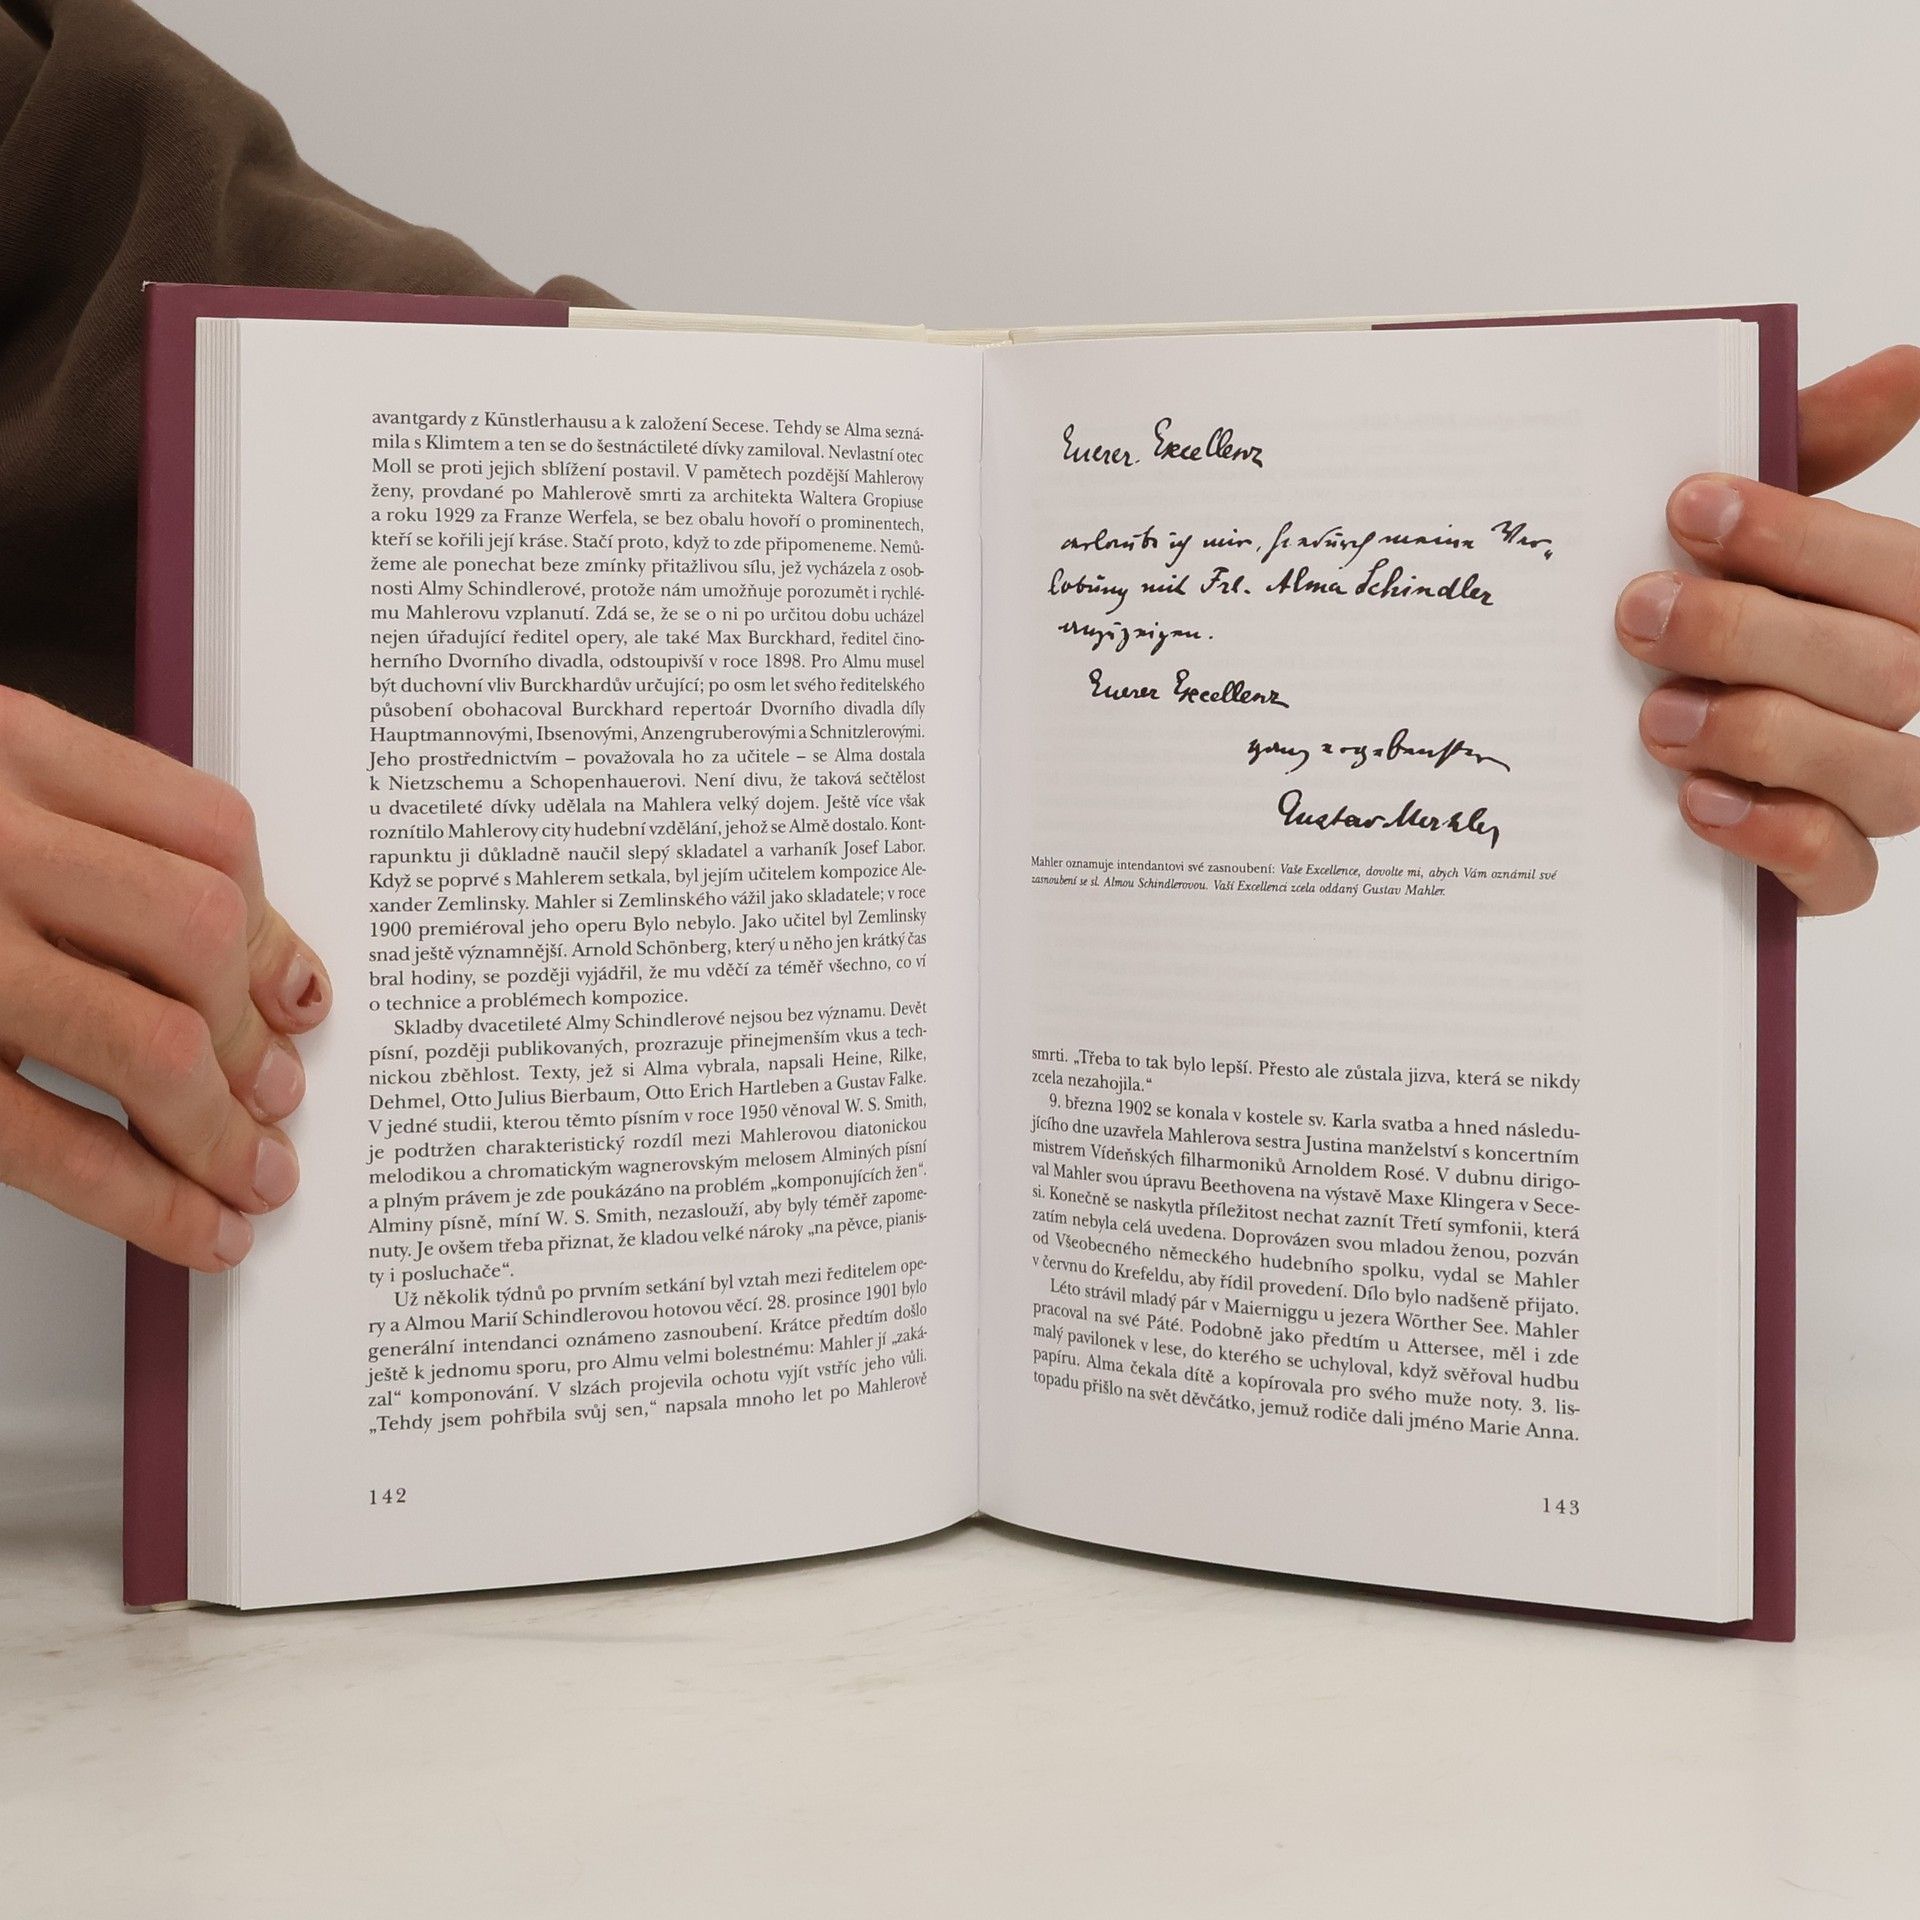 avantgardy z Künstlerhausu a k založení Secese. Tehdy se Alma sezná-
mila s Klimtem a ten se do šestnáctileté dívky zamiloval. Nevlastní otec
Moll se proti jejich sblížení postavil. V pamětech pozdější Mahlerovy
ženy, provdané po Mahlerově smrti za architekta Waltera Gropiuse
a roku 1929 za Franze Werfela, se bez obalu hovoří o prominentech,
kteří se kořili její kráse. Stačí proto, když to zde připomeneme. Nemů-
žeme ale ponechat beze zmínky přitažlivou sílu, jež vycházela z osob-
nosti Almy Schindlerové, protože nám umožňuje porozumět i rychlé-
mu Mahlerovu vzplanutí. Zdá se, že se o ni po určitou dobu ucházel
nejen úřadující ředitel opery, ale také Max Burckhard, ředitel čino-
herního Dvorního divadla, odstoupivší v roce 1898. Pro Almu musel
být duchovní vliv Burckhardův určující; po osm let svého ředitelského
působení obohacoval Burckhard repertoár Dvorního divadla díly
Hauptmannovými, Ibsenovými, Anzengruberovými a Schnitzlerovými.
Jeho prostřednictvím – považovala ho za učitele – se Alma dostala
k Nietzschemu a Schopenhauerovi. Není divu, že taková sečtělost
u dvacetileté dívky udělala na Mahlera velký dojem. Ještě více však
roznítilo Mahlerovy city hudební vzdělání, jehož se Almě dostalo. Kont-
rapunktu ji důkladně naučil slepý skladatel a varhaník Josef Labor.
Když se poprvé s Mahlerem setkala, byl jejím učitelem kompozice Ale-
xander Zemlinsky. Mahler si Zemlinského vážil jako skladatele; v roce
1900 premiéroval jeho operu Bylo nebylo. Jako učitel byl Zemlinsky
snad ještě významnější. Arnold Schönberg, který u něho jen krátký čas
bral hodiny, se později vyjádřil, že mu vděčí za téměř všechno, co ví
o technice a problémech kompozice.
Skladby dvacetileté Almy Schindlerové nejsou bez významu. Devět
písní, později publikovaných, prozrazuje přinejmenším vkus a tech-
nickou zběhlost. Texty, jež si Alma vybrala, napsali Heine, Rilke,
Dehmel, Otto Julius Bierbaum, Otto Erich Hartleben a Gustav Falke.
V jedné studii, kterou těmto písním v roce 1950 věnoval W. S. Smith,
je podtržen charakteristický rozdíl mezi Mahlerovou diatonickou
melodikou a chromatickým wagnerovským melosem Alminých písní
a plným právem je zde poukázáno na problém „komponujících žen“.
Alminy písně, míní W. S. Smith, nezaslouží, aby byly téměř zapome-
nuty. Je ovšem třeba přiznat, že kladou velké nároky „na pěvce, pianis-
ty i posluchače“.
Už několik týdnů po prvním setkání byl vztah mezi ředitelem ope-
ry a Almou Marií Schindlerovou hotovou věcí. 28. prosince 1901 bylo
generální intendanci oznámeno zasnoubení. Krátce předtím došlo
ještě k jednomu sporu, pro Almu velmi bolestnému: Mahler jí „zaká-
zal“ komponování. V slzách projevila ochotu vyjít vstříc jeho vůli.
„Tehdy jsem pohřbila svůj sen,“ napsala mnoho let po Mahlerově
142
Euerer Excellenz
erlaube ich mir, hiedurch meine Ver„
lobung mit Frl. Alma Schindler
anzuzeigen.
Euerer Excellenz
ganz ergebenster
Gustav Mahler
Mahler oznamuje intendantovi své zasnoubení: Vaše Excellence, dovolte mi, abych Vám oznámil své
zasnoubení se sl. Almou Schindlerovou. Vaší Excellenci zcela oddaný Gustav Mahler.
smrti. „Třeba to tak bylo lepší. Přesto ale zůstala jizva, která se nikdy
zcela nezahojila.“
9. března 1902 se konala v kostele sv. Karla svatba a hned následu-
jícího dne uzavřela Mahlerova sestra Justina manželství s koncertním
mistrem Vídeňských filharmoniků Arnoldem Rosé. V dubnu dirigo-
val Mahler svou úpravu Beethovena na výstavě Maxe Klingera v Sece-
si. Konečně se naskytla příležitost nechat zaznít Třetí symfonii, která
zatím nebyla celá uvedena. Doprovázen svou mladou ženou, pozván
od Všeobecného německého hudebního spolku, vydal se Mahler
v červnu do Krefeldu, aby řídil provedení. Dílo bylo nadšeně přijato.
Léto strávil mladý pár v Maierniggu u jezera Wörther See. Mahler
pracoval na své Páté. Podobně jako předtím u Attersee, měl i zde
malý pavilonek v lese, do kterého se uchyloval, když svěřoval hudbu
papíru. Alma čekala dítě a kopírovala pro svého muže noty. 3. lis-
topadu přišlo na svět děvčátko, jemuž rodiče dali jméno Marie Anna.
143